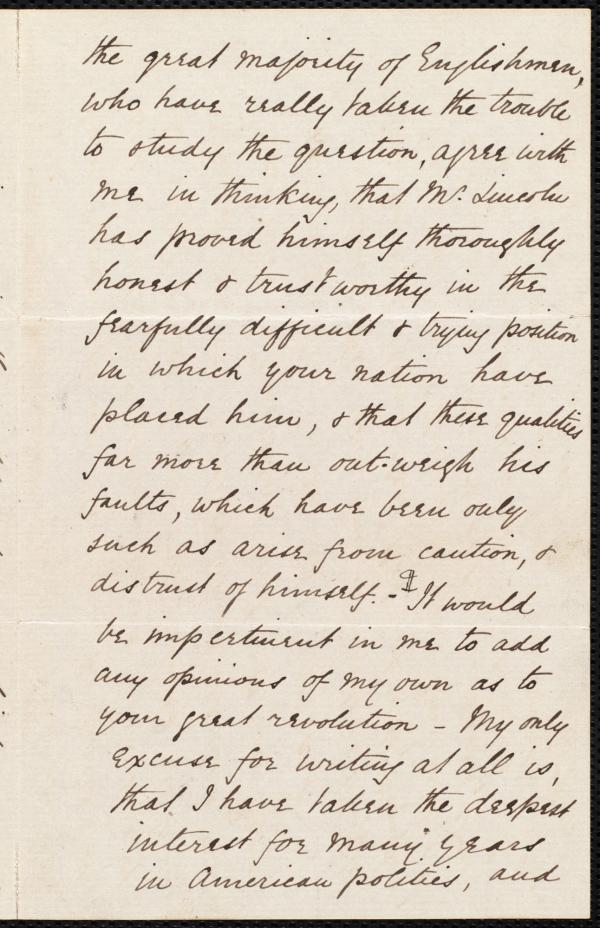 the great majority of Englishmen,
who have really taken the trouble
to study the question, agree with
me in thinking, that Mr. Lincoln
has proved himself thoroughly
honest & trustworthy in the
fearfully difficult & trying position
in which your nation have
placed him, & that these qualities
far more than out-weigh his
faults, which have been only
such as arise from caution, &
distrust of himself. - ¶ It would
be impertinent in me to add
any opinions of my own as to
your great revolution - My only
excuse for writing at all is,
that I have taken the deepest
interest for many years
in American politics, and